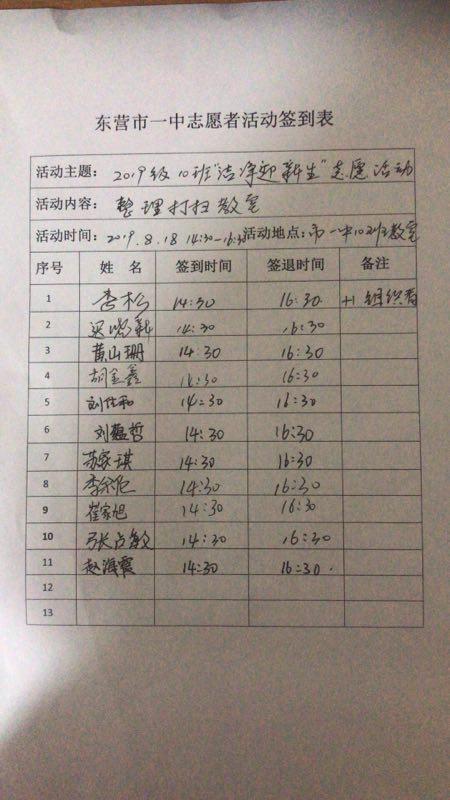 东营市一中志愿者活动签到表
活动主题：2019级10班"洁净迎新生"志愿活动
活动内容：整理打扫教室
活动时间：2019.8.18 14:30-16:30 活动地点：市一中10班教室
序号 姓 名 签到时间 签退时间 备注
1 李松 14:30 16:30 +1 组织者
2 14:30 16:30
3 黄山珊 14:30 16:30
4 胡金鑫 14:30 16:30
5 刘佳和 14:30 16:30
6 刘蕴哲 14:30 16:30
7 苏家琪 14:30 16:30
8 14:30 16:30
9 崔家旭 14:30 16:30
10 张占毅 14:30 16:30
11 赵海震 14:30 16:30.
12
13